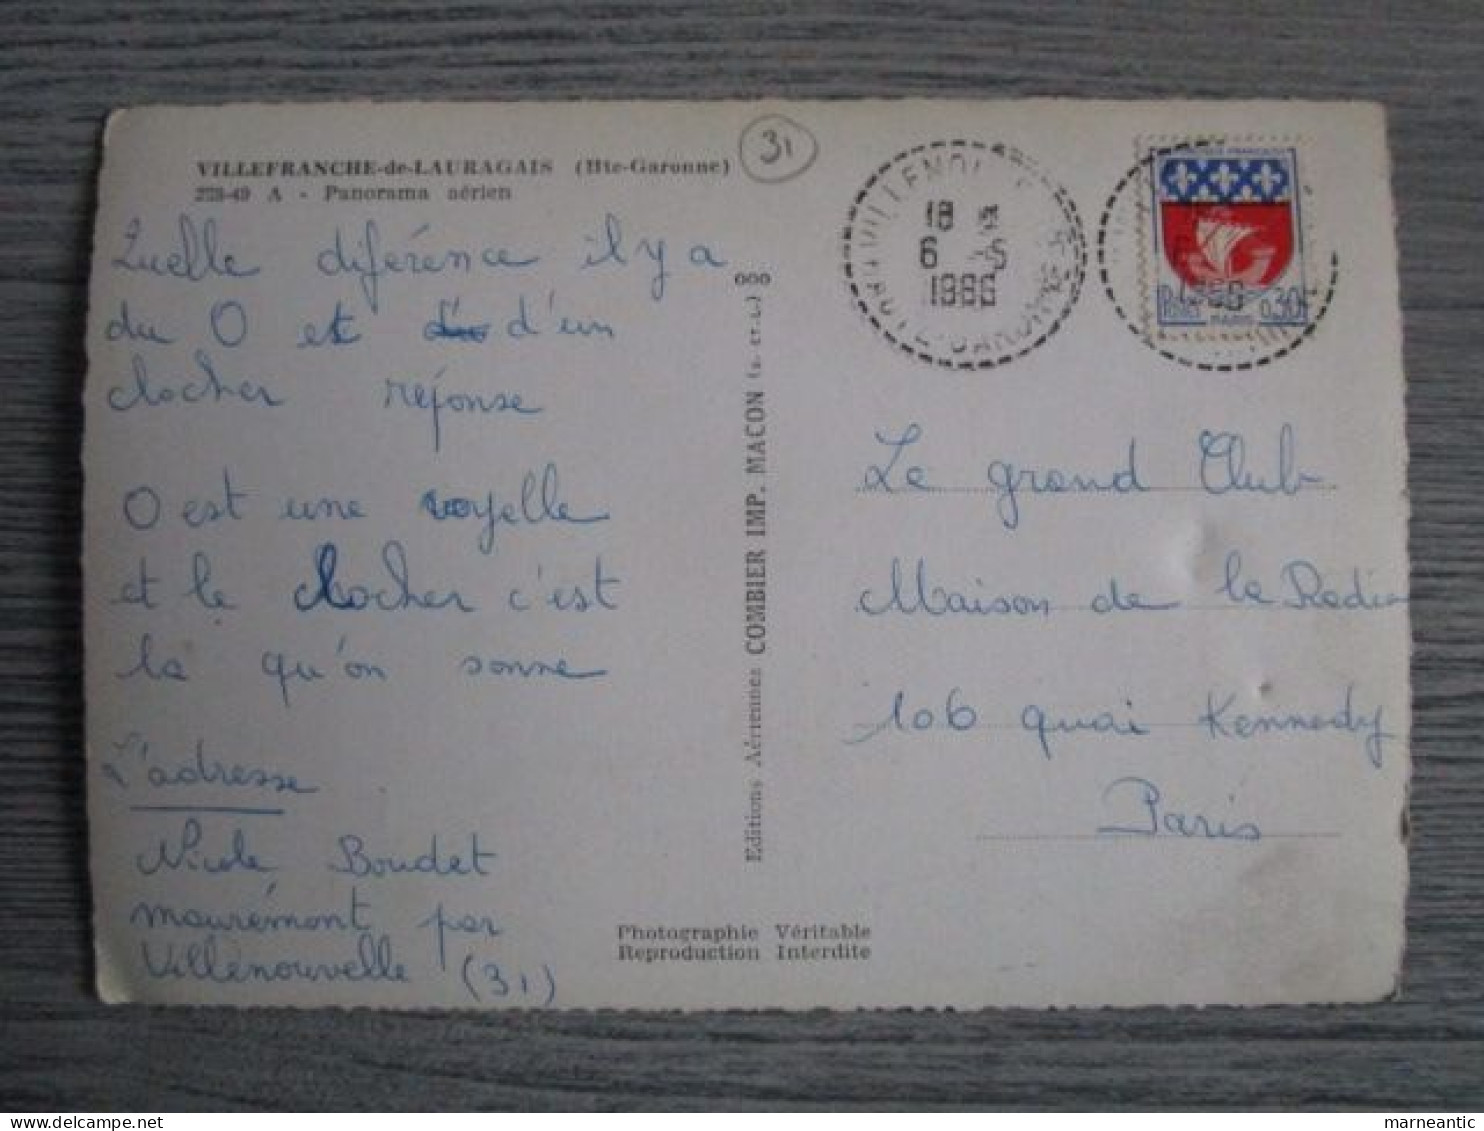 VILLEFRANCHE-de-LAURAGAIS (Hte-Garonne)
228-49 A - Panorama aérien
31
Quelle diférence il y a
du O et d'un
clocher réponse
O est une voyelle
et le clocher c'est
la qu'on sonne
L'adresse
Nicole Boudet
mourémont par
Villenouvelle (31)
Editions Aériennes COMBIER IMP. MACON
000
Photographie Véritable
Reproduction Interdite
18
6 -5
1966
HAUTE-GARONNE
Postes 0,30f
PARIS
Le grand Club
Maison de la Radio
106 quai Kennedy
Paris
marneantic